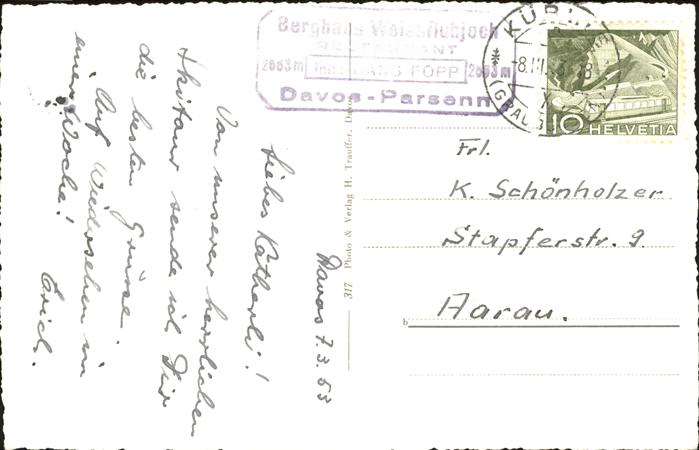 Davos 7.3.53
Liebes Kätherli!
Von unserer herrlichen
Skitour sende ich Dir
die besten Grüsse.
Auf Wiedersehen in
einer Woche!
Erich.
317 Photo & Verlag H. Trauffer, Davos
Berghaus Weissfluhjoch
RESTAURANT
2663m Inh. HANS FOPP 2663m
Davos-Parsenn
KÜBLIS
-8.III.53-18
(GRAUB
10 HELVETIA
Frl.
K. Schönholzer
Stapferstr. 9
Aarau.
b